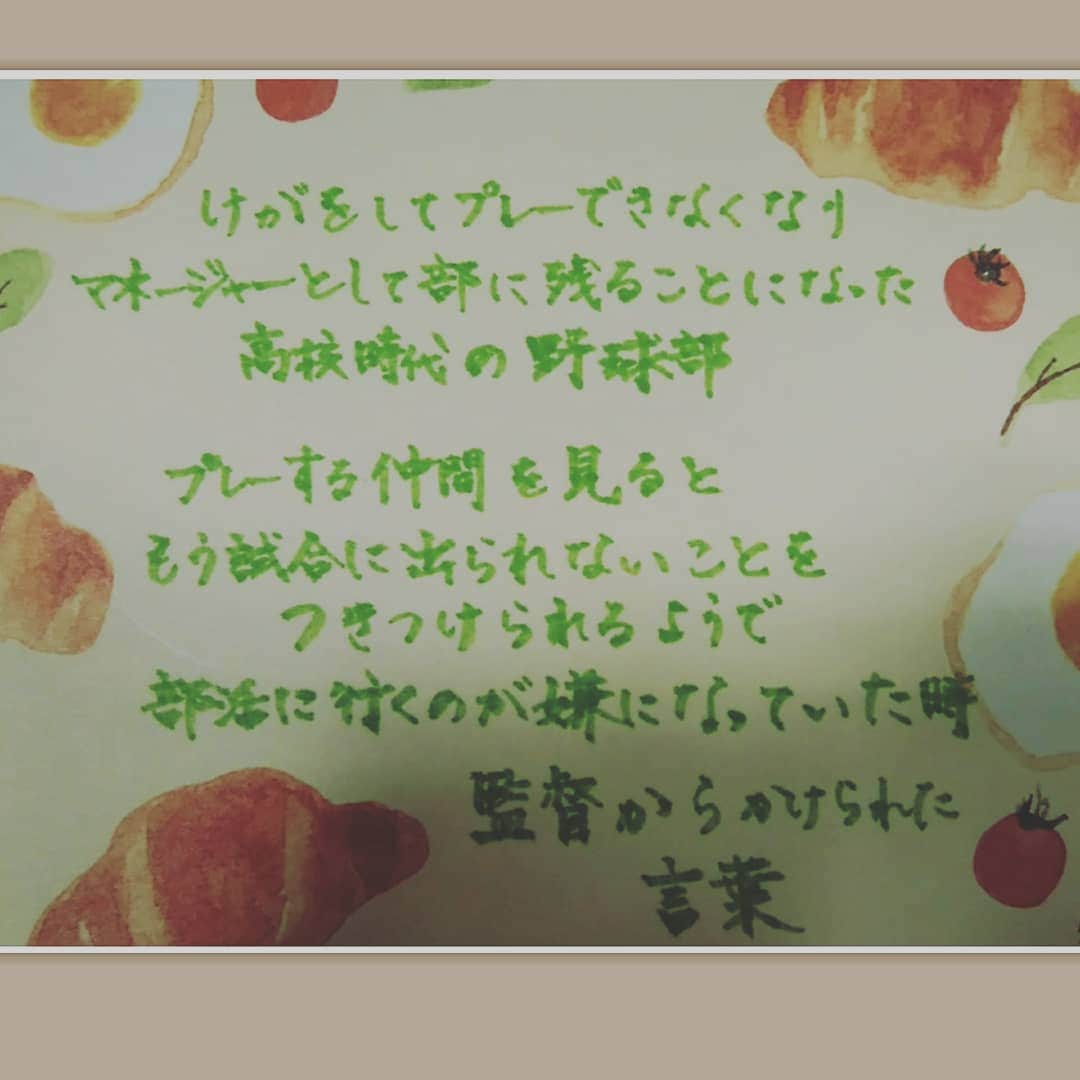 けがをしてプレーできなくなり
マネージャーとして部に残ることになった
高校時代の野球部
プレーする仲間を見ると
もう試合に出られないことを
つきつけられるようで
部活に行くのが嫌になっていた時
監督からかけられた
言葉